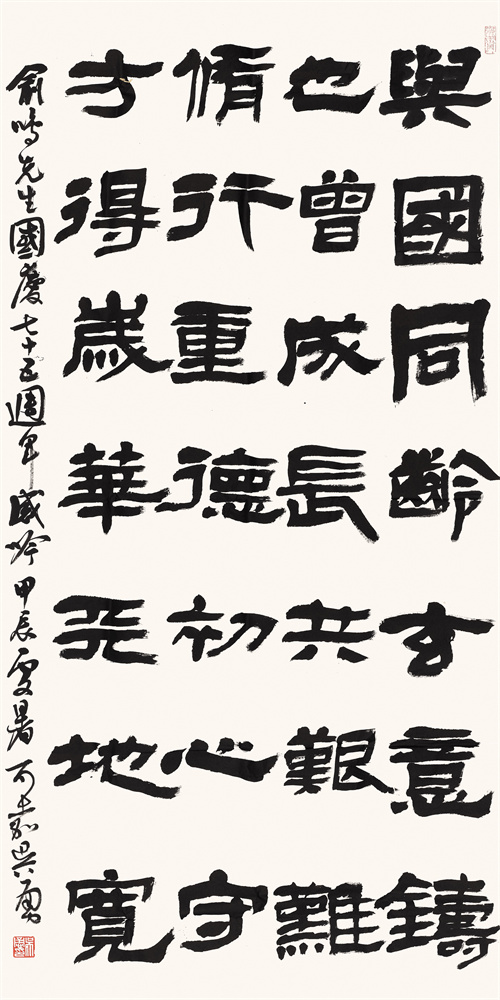 與國同齡玄意鑄
也曾成長共艱難
脩行重德初心守
方得歲華天地寬
俞鳴先生國慶七十五週年感吟甲辰處暑吳勇